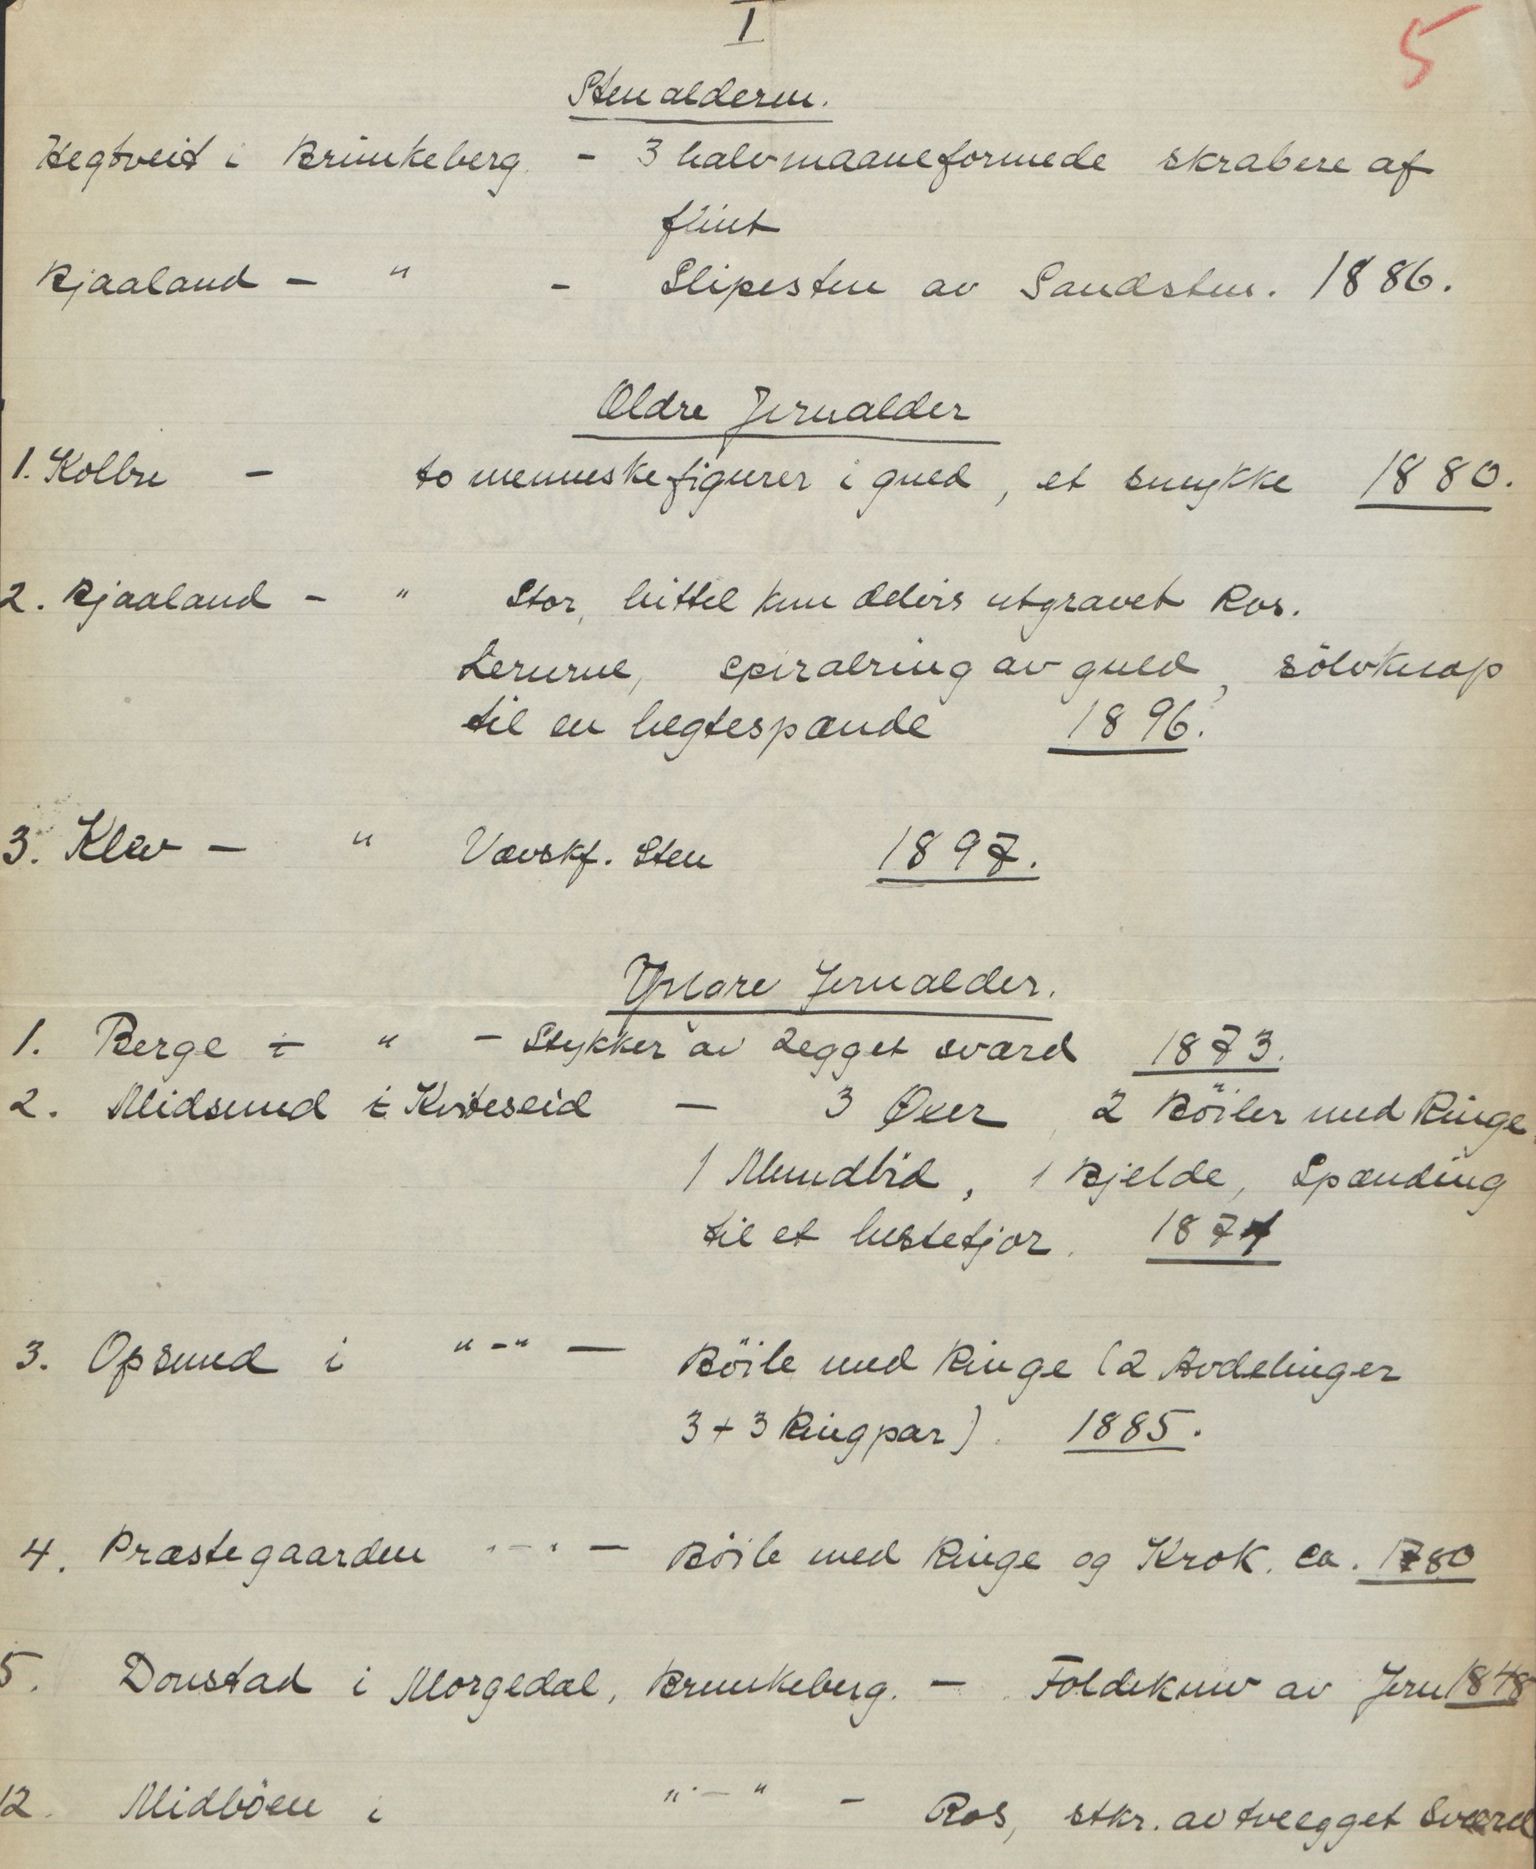 I
5
Stenalderen.
Hegtveit i Brunkeberg. - 3 halvmaaneformede skrabere af
flint
Kjaaland - " - Slipesten av Sandsten. 1886.
Ældre Jernalder
1. Kolbre - to menneskefigurer i guld, et smykke 1880.
2. Kjaaland - " Stor, hittil kun delvis utgravet Ros.
Lerurne, spiralring av guld, sölvknap
til en hegtespænde 1896.
3. Klev - " Vævskf. Sten 1897.
Yngre Jernalder.
1. Berge i " - Stykker av 2egget sværd 1873.
2. Midsund i Kviteseid - 3 Øxer, 2 Böiler med Ringe,
1 Mundbid, 1 Bjelde, Spænding
til et hestefjor. 1874
3. Opsund i " - " - Böile med Ringe (2 Avdelinger
3 + 3 Ringpar). 1885.
4. Præstegaarden " - " - Böile med Ringe og Krok. ca. 1780
5. Donstad i Morgedal, Brunkeberg. - Foldekniv av Jern 1848
12. Midböen i " - " - Ros, stkr. av tveegget Sværd